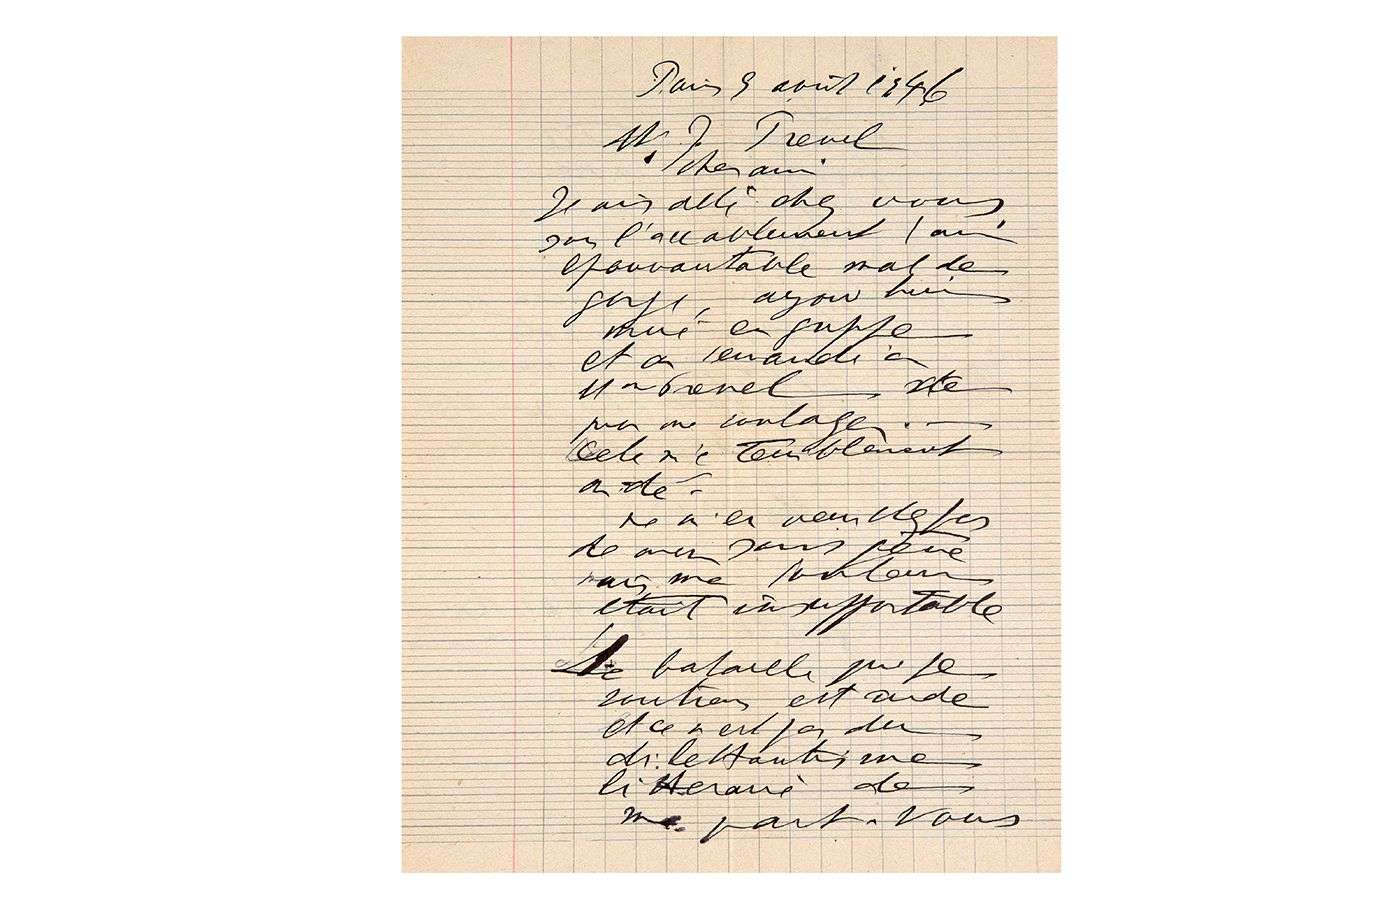 Paris 9 août 1946
M. J. Trevel
cher ami
Je suis allé chez vous
sous l'accablement d'un
épouvantable mal de
gorge, aujourd'hui
mué en grippe
et ai demandé à
Mme Trevel de
pour me soulager.
Cela m'a terriblement
aidé.
Ne m'en veuillez pas
de mon sans gêne
mais ma douleur
était insupportable
La bataille que je
soutiens est rude
et ce n'est pas du
dilettantisme
littéraire de
ma part. Vous